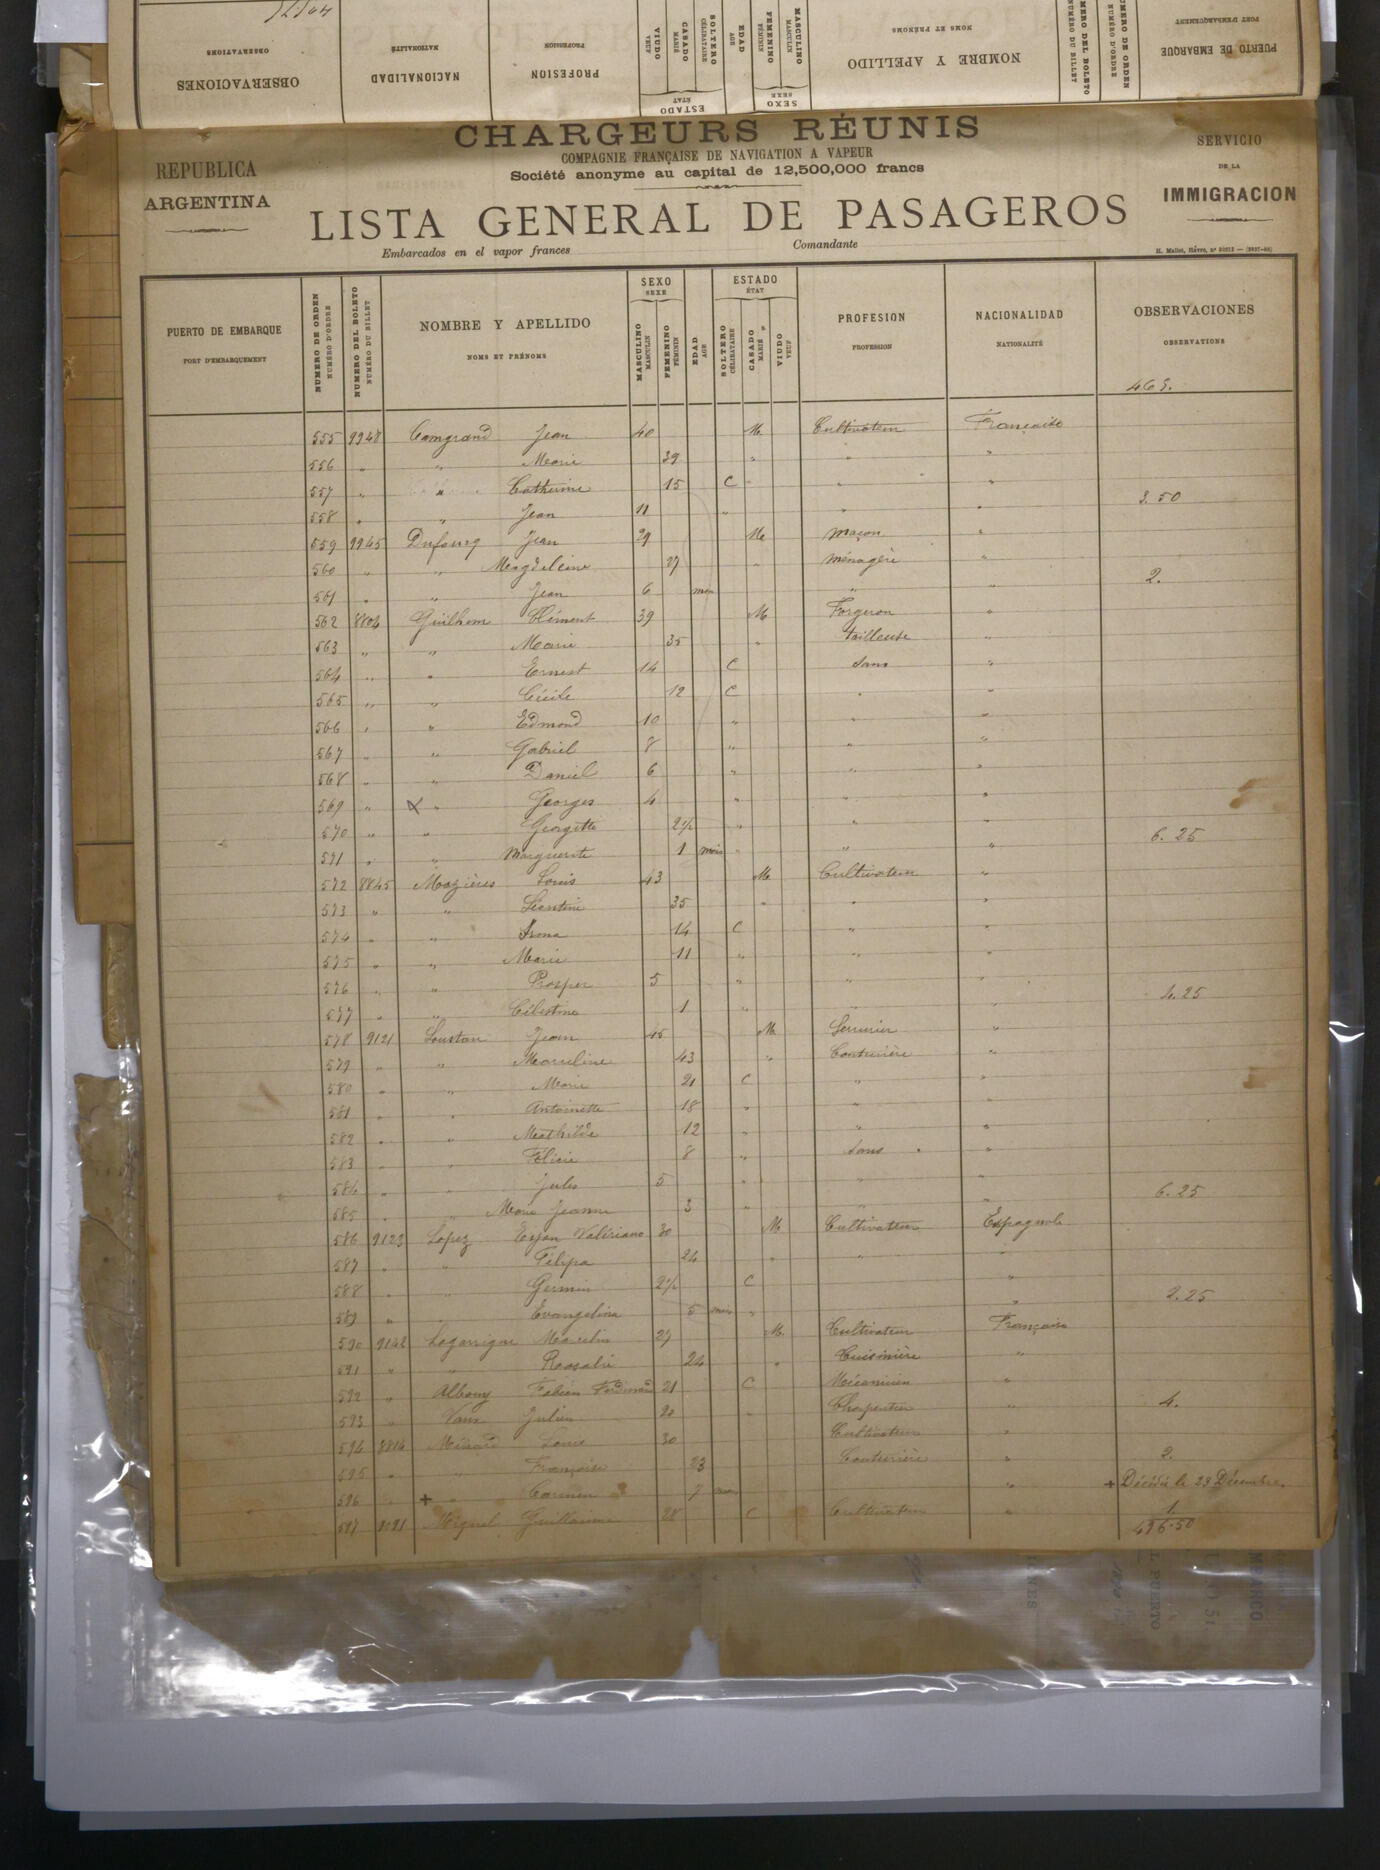 12.504
PUERTO DE EMBARQUE
PORT D'EMBARQUEMENT
NUMERO DE ORDEN
NUMÉRO D'ORDRE
NUMERO DEL BOLETO
NUMÉRO DU BILLET
NOMBRE Y APELLIDO
NOMS ET PRÉNOMS
SEXO
SEXE
MASCULINO
MASCULIN
FEMENINO
FÉMININ
EDAD
AGE
ESTADO
ÉTAT
SOLTERO
CÉLIBATAIRE
CASADO
MARIÉ
VIUDO
VEUF
PROFESION
PROFESSION
NACIONALIDAD
NATIONALITÉ
OBSERVACIONES
OBSERVATIONS
CHARGEURS RÉUNIS
COMPAGNIE FRANÇAISE DE NAVIGATION A VAPEUR
Société anonyme au capital de 12,500,000 francs
REPUBLICA
ARGENTINA
SERVICIO
DE LA
IMMIGRACION
LISTA GENERAL DE PASAGEROS
Embarcados en el vapor frances Comandante
H. Mallet, Hâvre, nº
PUERTO DE EMBARQUE
PORT D'EMBARQUEMENT
NUMERO DE ORDEN
NUMÉRO D'ORDRE
NUMERO DEL BOLETO
NUMÉRO DU BILLET
NOMBRE Y APELLIDO
NOMS ET PRÉNOMS
SEXO
SEXE
MASCULINO
MASCULIN
FEMENINO
FÉMININ
EDAD
AGE
ESTADO
ÉTAT
SOLTERO
CÉLIBATAIRE
CASADO
MARIÉ
VIUDO
VEUF
PROFESION
PROFESSION
NACIONALIDAD
NATIONALITÉ
OBSERVACIONES
OBSERVATIONS
555 9948 Camgrand Jean 40 M Cultivateur Française
556 " " Marie 39 " " "
557 " " Catherine 15 C " "
558 " " Jean 11 " " " 3.50
559 9945 Dufourg Jean 29 M maçon "
560 " " Magdeleine 27 " ménagère "
561 " " Jean 6 mois " " 2.
562 8804 Guilhem Clément 39 M Forgeron "
563 " " Marie 35 " tailleuse "
564 " " Ernest 14 C sans "
565 " " Cécile 12 C " "
566 " " Edmond 10 " " "
567 " " Gabriel 8 " " "
568 " " Daniel 6 " " "
569 " " Georges 4 " " "
570 " " Georgette 2 1/2 " " "
571 " " Marguerite 1 mois " " " 6.25
572 8845 Mazières Louis 43 M Cultivateur "
573 " " Léontine 35 " " "
574 " " Irma 14 C " "
575 " " Marie 11 " " "
576 " " Prosper 5 " " "
577 " " Célestine 1 " " " 4.25
578 9121 Loustau Jean 45 M Serrurier "
579 " " Marceline 43 " Couturière "
580 " " Marie 21 C " "
581 " " Antoinette 18 " " "
582 " " Mathilde 12 " " "
583 " " Félicie 8 " sans "
584 " " Jules 5 " " "
585 " " Marie Jeanne 3 " " " 6.25
586 9123 Lopez Valériano 30 M Cultivateur Espagnole
587 " " Félipa 24 " " "
588 " " Germin 2 1/2 C "
589 " " Evangelina 5 mois " " 2.25
590 9142 Lagarrigue Marcelin 27 M. Cultivateur Française
591 " " Roosalie 24 " Cuisinière "
592 " Albouy Fabien Ferdinand 21 C Mécanicien "
593 " Julien 20 " Charpentier " 4.
594 8814 Louis 30 Cultivateur "
595 " " Françoise 23 Couturière " 2.
596 " Carmen 7 mois " + Décédée le 23 Décembre.
597 9091 Miquel Guillaume 28 C Cultivateur " 1.
496.50